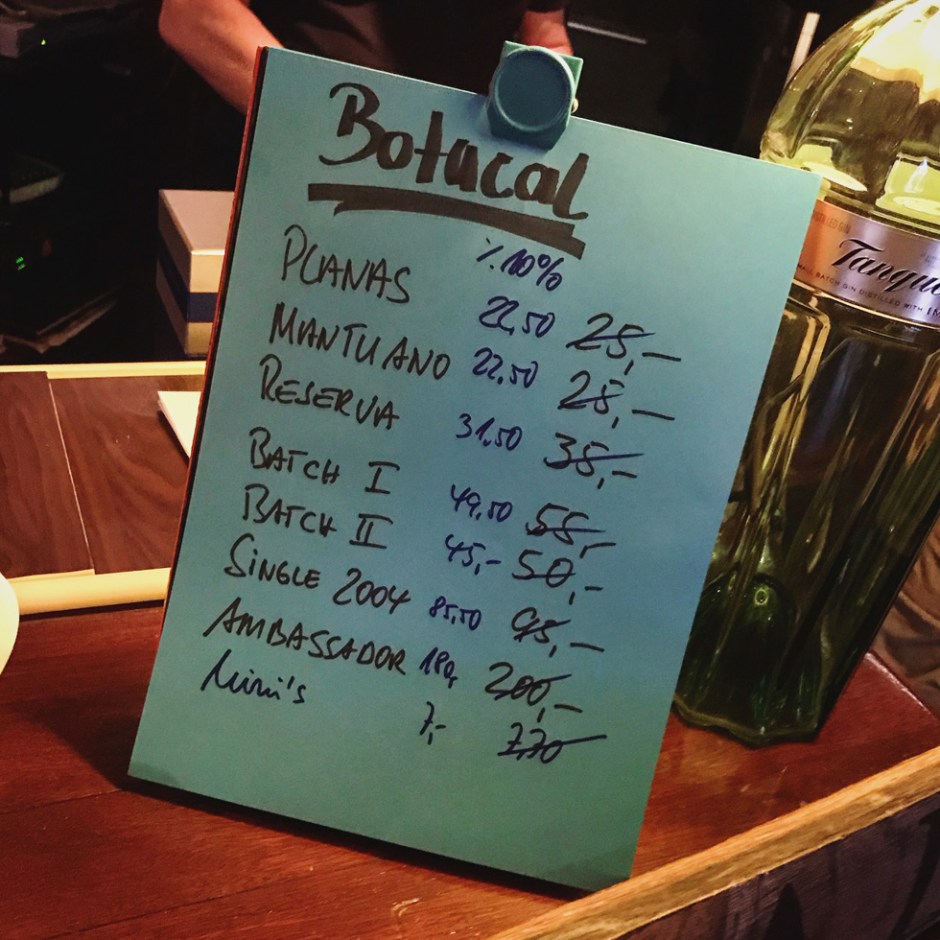 Botucal
% 10%
PLANAS 22,50 25,—
MANTUANO 22,50 25,—
RESERVA 31,50 35,—
BATCH I 49,50 55,—
BATCH II 45,- 50,—
SINGLE 2004 85,50 95,—
AMBASSADOR 180,- 200,—
Mini's 7,- 7,70
Tanque
BATCH GIN DISTILLED WITH